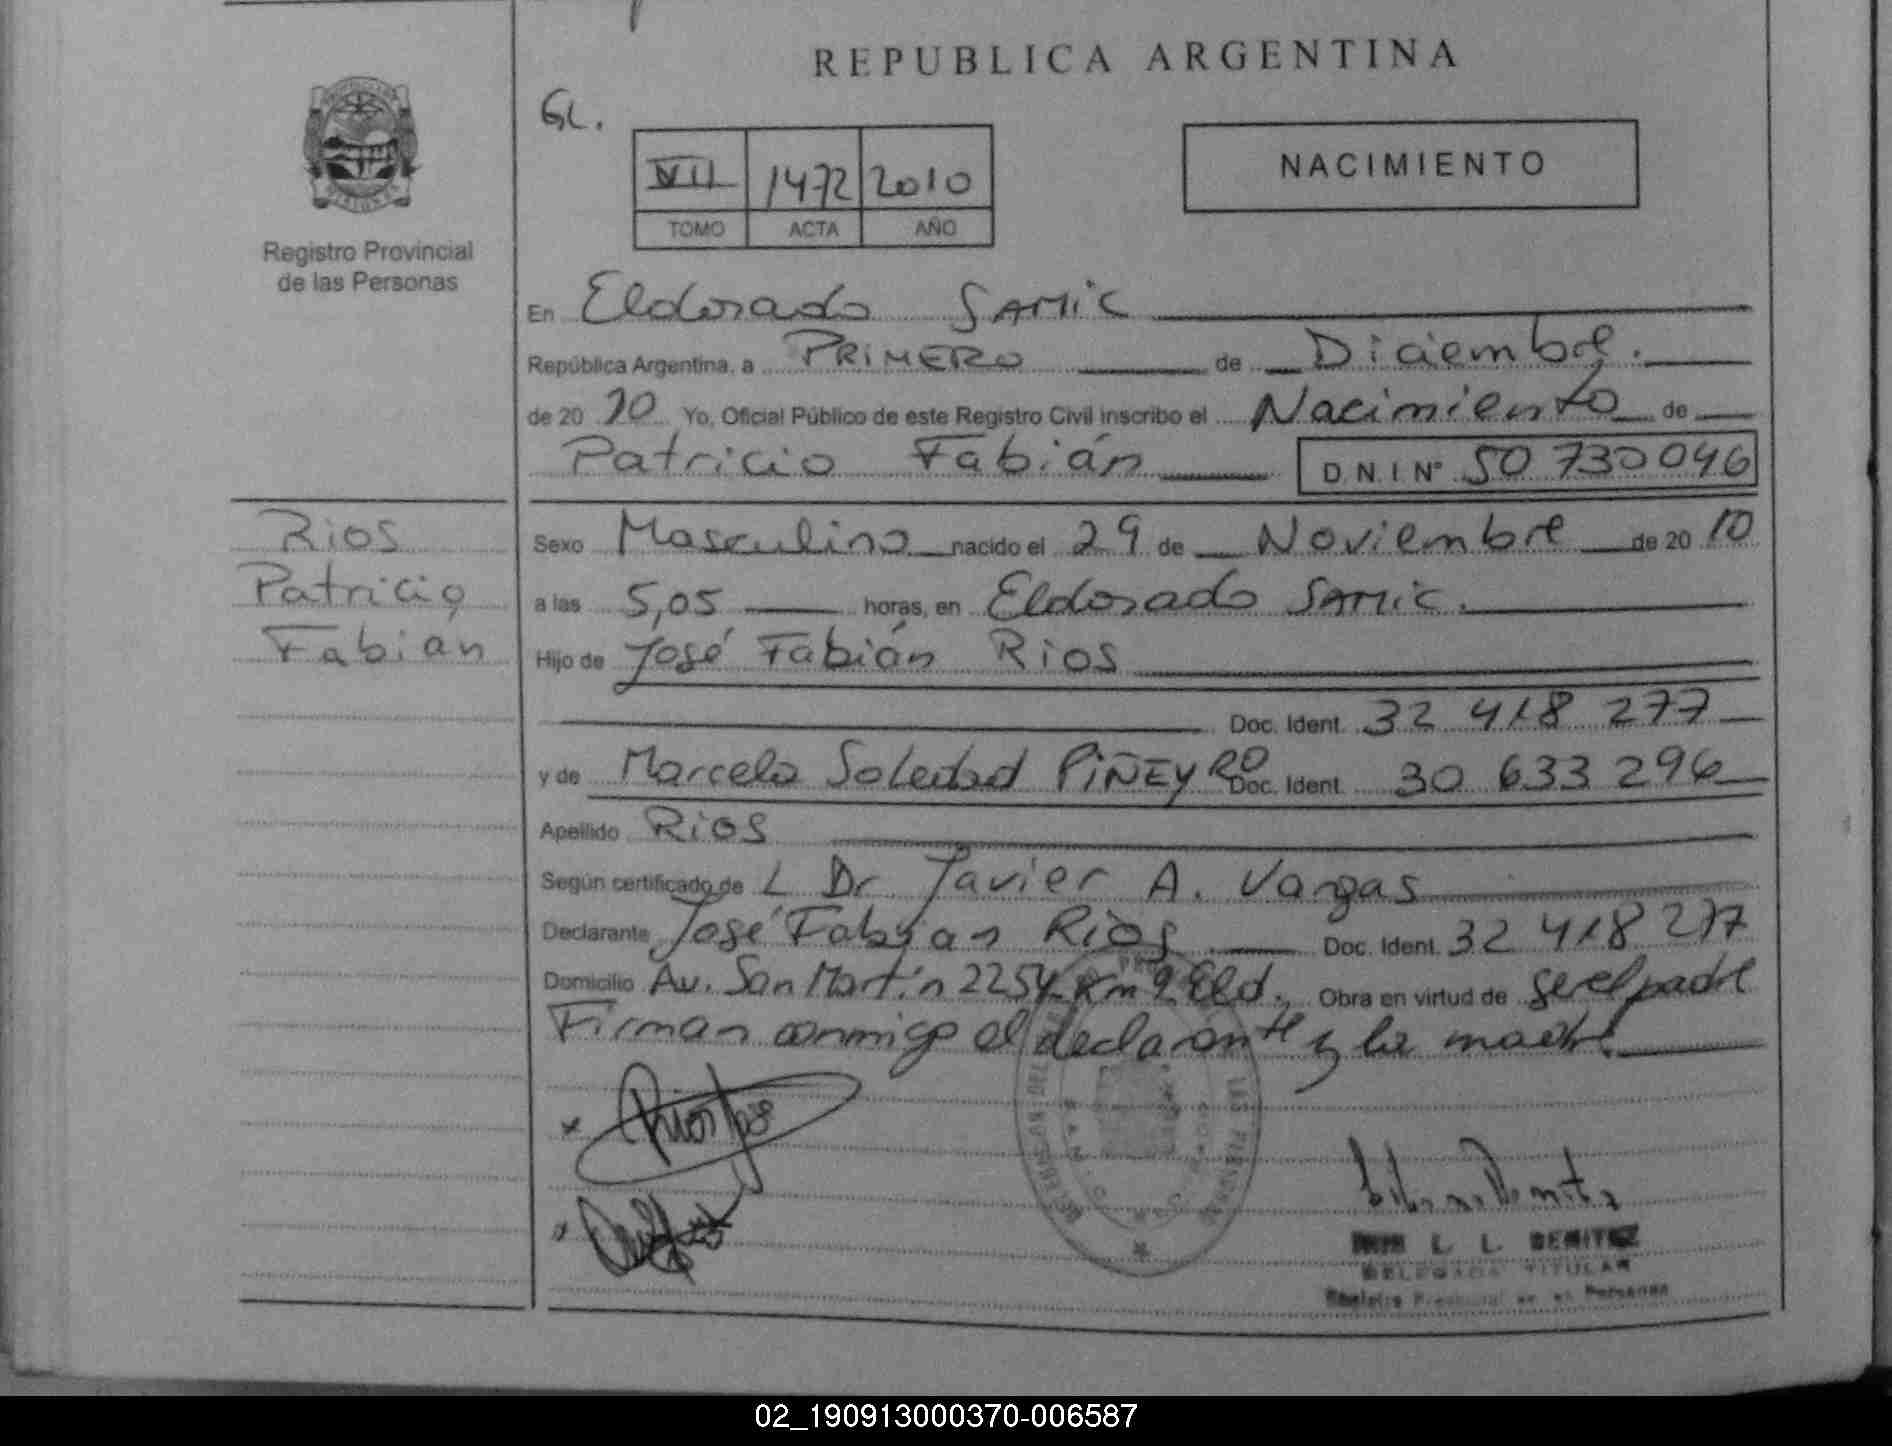 REPUBLICA ARGENTINA
GL.
VII 1472 2010
TOMO ACTA AÑO
NACIMIENTO
Registro Provincial
de las Personas
En Eldorado SAMIC
República Argentina, a PRIMERO de Diciembre.
de 20 10 Yo, Oficial Público de este Registro Civil inscribo el Nacimiento de
Patricio Fabián D.N.I Nº 50 730 046
Rios
Patricio
Fabián
Sexo Masculino nacido el 29 de Noviembre de 20 10
a las 5,05 horas, en Eldorado SAMIC.
Hijo de José Fabián Rios
Doc. Ident. 32 418 277
y de Marcela Soledad PIÑEYRO Doc. Ident. 30 633 296
Apellido Rios
Según certificado de L Dr Javier A. Vargas
Declarante José Fabian Rios Doc. Ident. 32 418 277
Domicilio Av. San Martín 2254 Km 9 Eld. Obra en virtud de ser el padre
Firman conmigo el declarante y la madre.
L. L. BENITEZ
DELEGADA TITULAR
Registro Provincial de las Personas
02_190913000370-006587